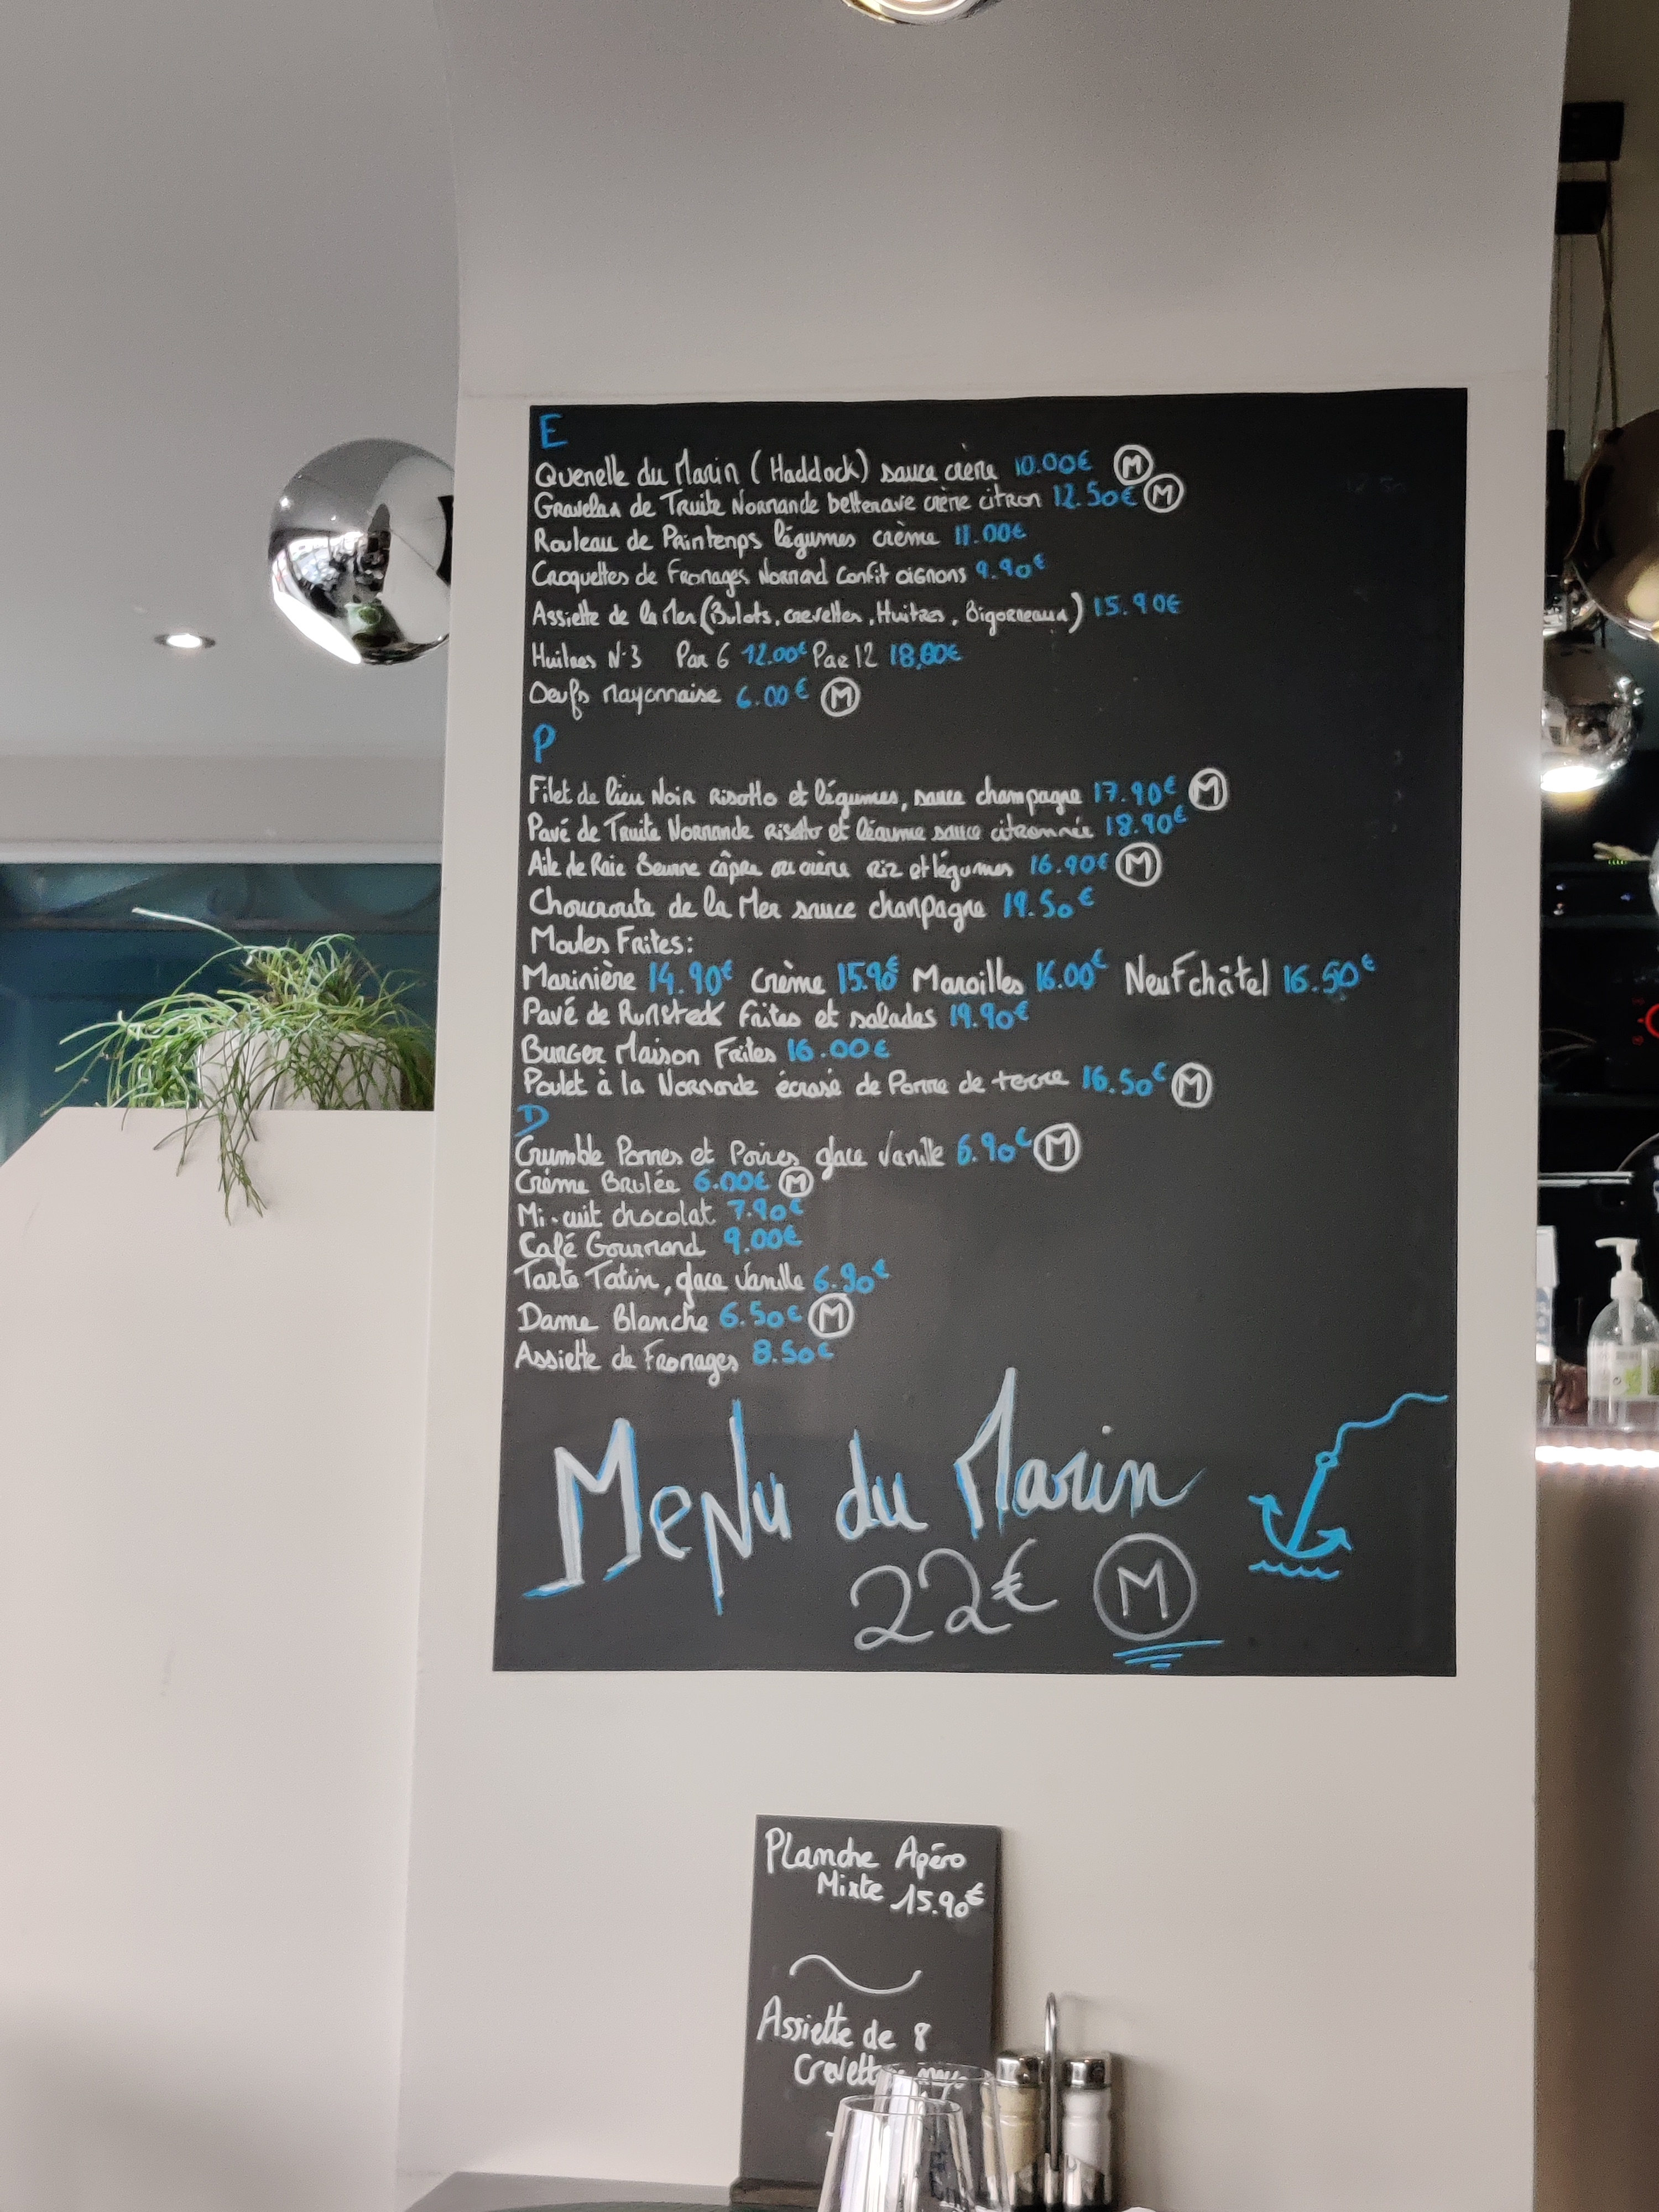 E
Quenelle du Marin (Haddock) sauce crème 10.00€ M
Gravelax de Truite Normande betterave crème citron 12.50€ M
Rouleau de Printemps légumes crème 11.00€
Croquettes de Fromages Normand Confit oignons 9.90€
Assiette de la Mer (Bulots, crevettes, Huitres, Bigorneaux) 15.90€
Huitres N°3 Par 6 12.00€ Par 12 18,00€
Oeufs mayonnaise 6.00€ M
P
Filet de lieu Noir Risotto et légumes, sauce champagne 17.90€ M
Pavé de Truite Normande risotto et légume sauce citronnée 18.90€
Aile de Raie Beurre câpre ou crème riz et légumes 16.90€ M
Choucroute de la Mer sauce champagne 19.50€
Moules Frites:
Marinière 14.90€ Crème 15.90€ Maroilles 16.00€ Neufchâtel 16.50€
Pavé de Rumsteck Frites et salades 19.90€
Burger Maison Frites 16.00€
Poulet à la Normande écrasé de Pomme de terre 16.50€ M
D
Crumble Pommes et Poires glace Vanille 6.90€ M
Crème Brulée 6.00€ M
Mi-cuit chocolat 7.90€
Café Gourmand 9.00€
Tarte Tatin, glace Vanille 6.90€
Dame Blanche 6.50€ M
Assiette de Fromages 8.50€
Menu du Marin
22€ M
Planche Apéro
Mixte 15.90€
Assiette de 8